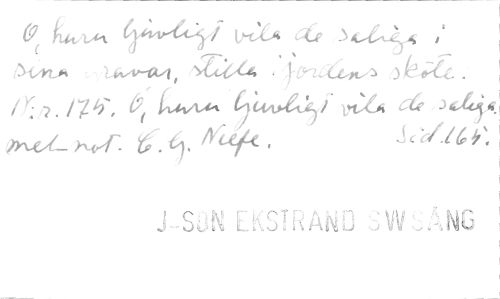 O, huru ljuvligt vila de saliga i
sina gravar, stilla i jordens sköte.
N:r. 175. O, huru ljuvligt vila de saliga.
mel-not. C. G. Niefe. Sid. 165.
J-SON EKSTRAND SVVSÅNG